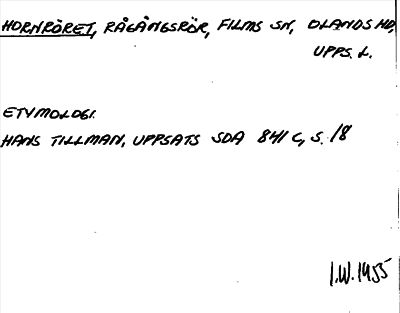 HORNRÖRET, RÅGÅNGSRÖR, FILMS SN, OLANDS HD,
UPPS. L.
ETYMOLOGI.
HANS TILLMAN, UPPSATS SDA 841 C, S. 18
I.W. 1955